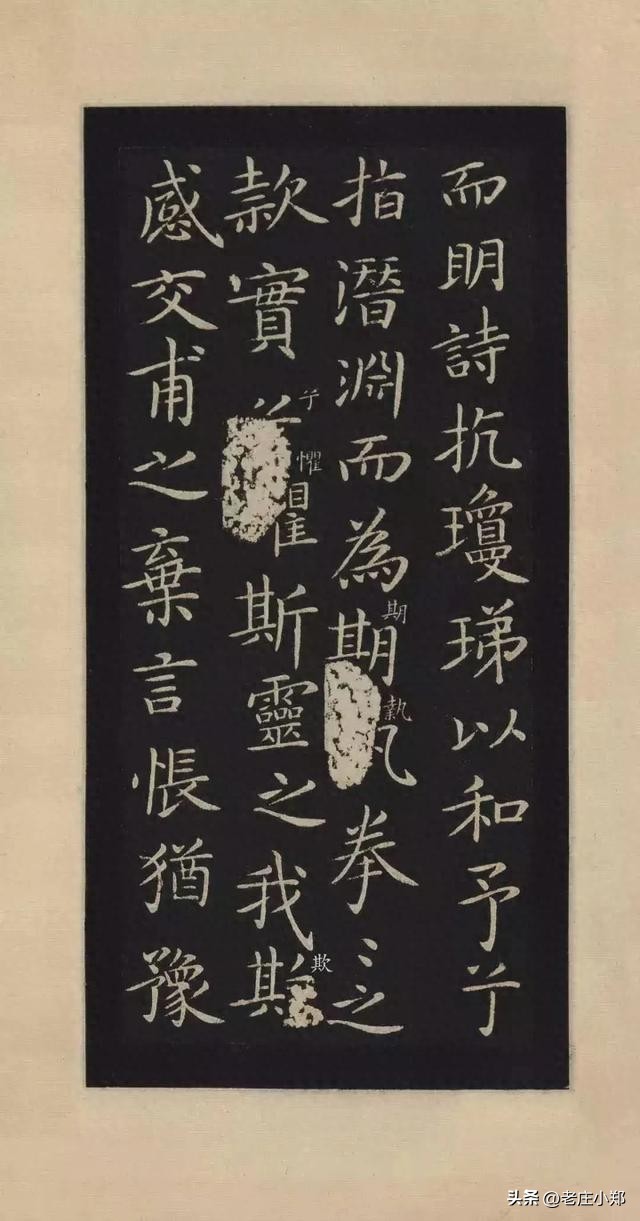 而明詩抗瓊珶以和予兮
指潛淵而為期執拳〻之
款實兮懼斯靈之我欺
感交甫之棄言悵猶豫
期
執
兮
懼
欺
头条 @老庄小郑